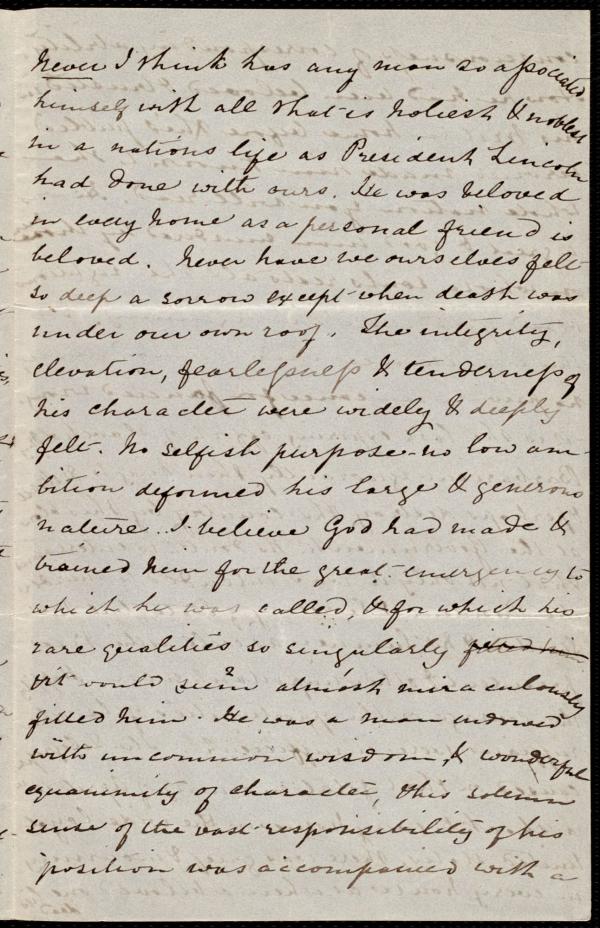 Never I think has any man so associated
himself with all that is holiest & noblest
in a nation's life as President Lincoln
had done with ours. He was beloved
in every home as a personal friend is
beloved. Never have we ourselves felt
so deep a sorrow except when death was
under our own roof. The integrity,
elevation, fearlessness & tenderness of
his character were widely & deeply
felt. No selfish purpose - no low am-
bition deformed his large & generous
nature. I believe God had made &
trained him for the great emergency to
which he was called, & for which his
rare qualities so singularly fitted him
& it would seem almost miraculously
fitted him. He was a man endowed
with uncommon wisdom, & wonderful
equanimity of character, & his solemn
sense of the vast responsibility of his
position was accompanied with a